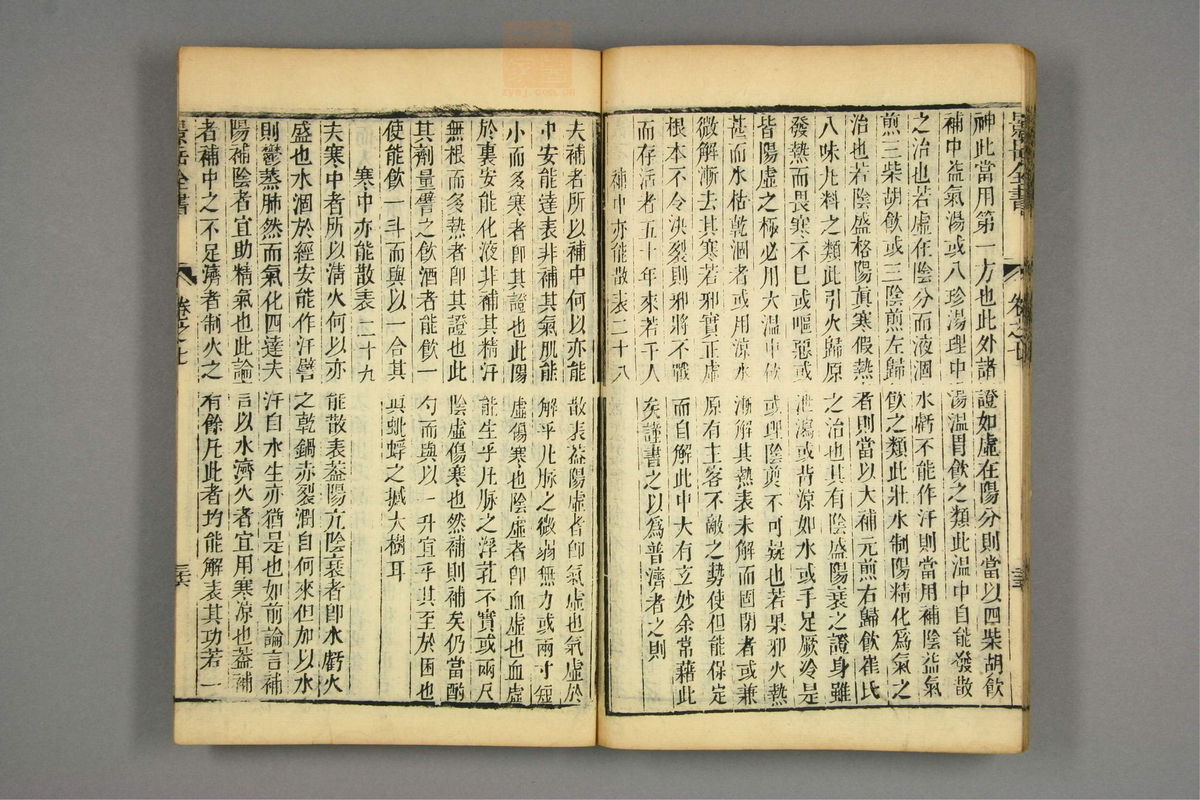 景岳全書
卷之七
三五
神此當用第一方也此外諸證如虛在陽分則當以四柴胡飲
補中益氣湯或八珍湯理中湯溫胃飲之類此溫中自能發散
之治也若虛在陰分而液涸水虧不能作汗則當用補陰益氣
煎三柴胡飲或三陰煎左歸飲之類此壯水制陽精化爲氣之
治也若陰盛格陽眞寒假熱者則當以大補元煎右歸飲崔氏
八味丸料之類此引火歸原之治也其有陰盛陽衰之證身雖
發熱而畏寒不已或嘔惡或泄瀉或背涼如水或手足厥冷是
皆陽虛之極必用大溫中飲或理陰煎不可疑也若果邪火熱
甚而水枯乾涸者或用涼水漸解其熱表未解而固閉者或兼
微解漸去其寒若邪實正虛原有主客不敵之勢使但能保定
根本不令決裂則邪將不戰而自解此中大有立妙余常藉此
而存活者五十年來若干人矣謹書之以爲普濟者之則
補中亦能散表二十八
夫補者所以補中何以亦能散表葢陽虛者卽氣虛也氣虛於
中安能達表非補其氣肌能解乎凡脉之微弱無力或兩寸短
小而多寒者卽其證也此陽虛傷寒也陰虛者卽血虛也血虛
於裏安能化液非補其精汗能生乎凡脉之浮芤不實或兩尺
無根而多熱者卽其證也此陰虛傷寒也然補則補矣仍當酌
其劑量譬之飲酒者能飲一勺而與以一升宜乎其至於困也
使能飲一斗而與以一合其與蚍蜉之撼大樹耳
寒中亦能散表二十九
夫寒中者所以清火何以亦能散表葢陽亢陰衰者卽水虧火
盛也水涸於經安能作汗譬之乾鍋赤裂潤自何來但加以水
則鬱蒸肺然而氣化四達夫汗自水生亦猶是也如前論言補
陽補陰者宜助精氣也此論言以水濟火者宜用寒凉也葢補
者補中之不足濟者制火之有餘凡此者均能解表其功若一
景岳全書
卷之七
三六